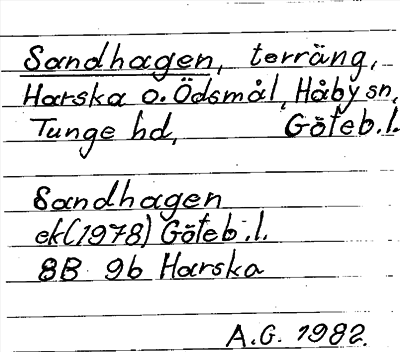 Sandhagen, terräng,
Harska o. Ödsmål, Håby sn,
Tunge hd, Göteb.l.
Sandhagen
ek(1978) Göteb.l.
8B 9b Harska
A.G. 1982.